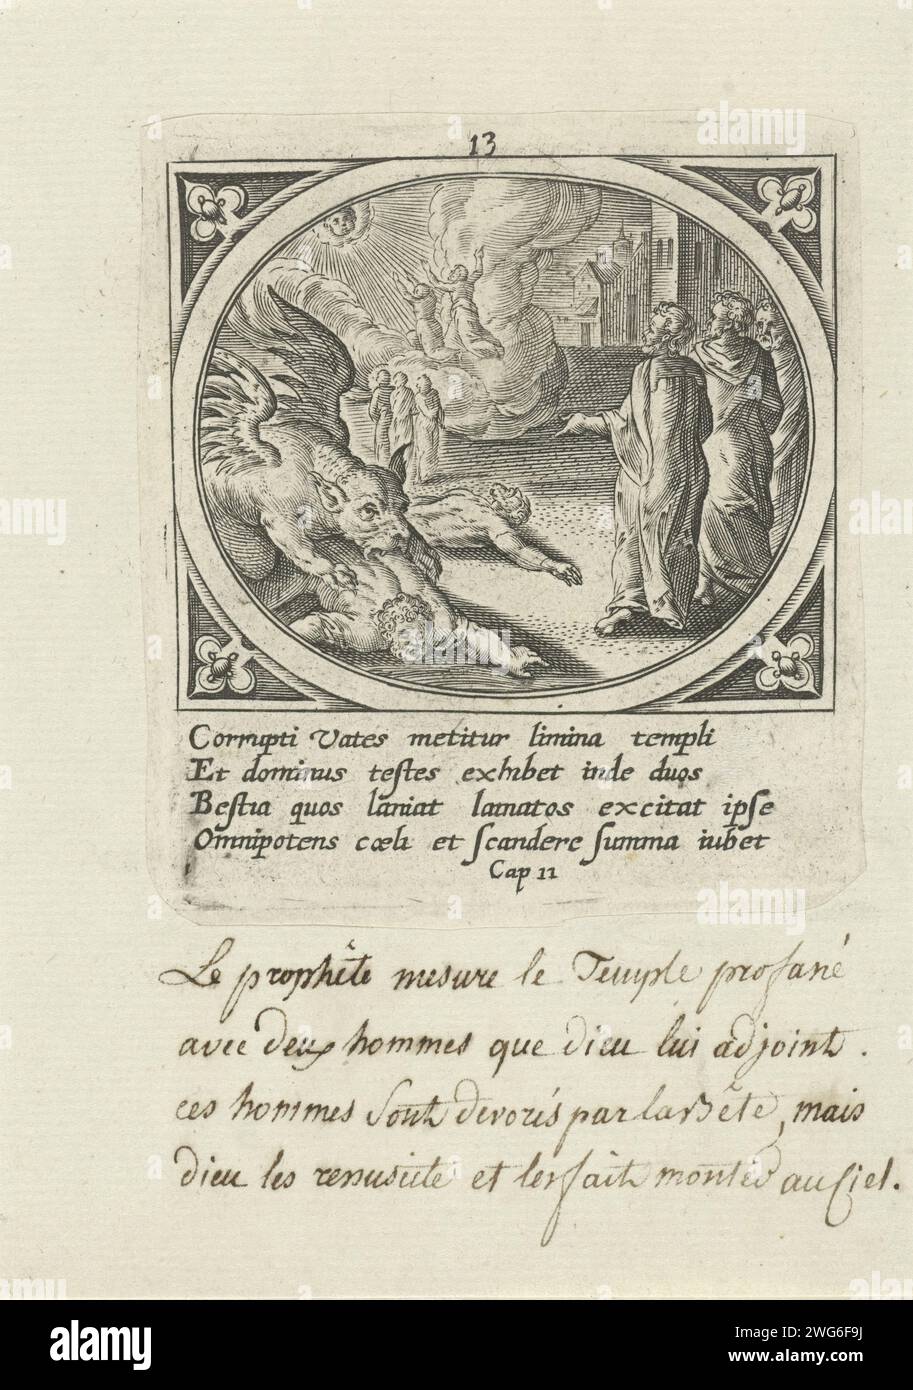 13
Corrupti Vates metitur limina templi
Et dominus testes exhibet inde duos
Bestia quos laniat lamatos excitat ipse
Omnipotens cœli et scandere summa iubet
Cap 11
Le prophête mesure le Temple profané
avec deux hommes que dieu lui adjoint.
ces hommes sont devorés par la Bête, mais
dieu les renusiite et les fait monter au Ciel.
alamy
Image ID: 2WG6F9J
www.alamy.com